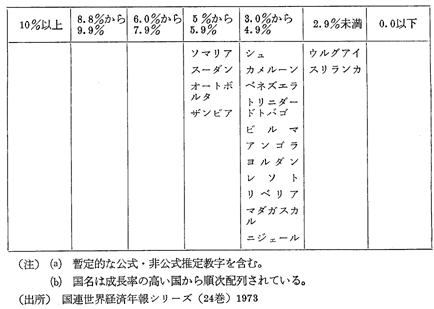 10％以上
8.8％から
9.9％
6.0％から
7.9％
5％から
5.9％
3.0％から
4.9％
2.9％未満
0.0以下
ソマリア
スーダン
オートボ
ルタ
ザンビア
シュ
カメルーン
ベネズエラ
トリニダー
ドトバゴ
ビルマ
アンゴラ
ヨルダン
レソト
リベリア
マダガスカ
ル
ニジェール
ウルグアイ
スリランカ
（注） (a) 暫定的な公式・非公式推定数字を含む。
(b) 国名は成長率の高い国から順次配列されている。
（出所） 国連世界経済年報シリーズ（24巻）1973